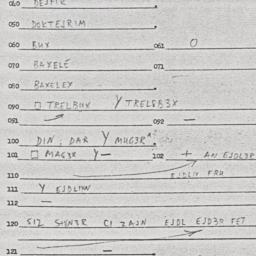 040
050 DOKTEJRIM
060 BUX 061 O
070 BAXELÉ 071
080 BAXELEY
090 □ TRELBUX Y TRELBB3X
091 092 —
100 DIN; DAR Y MUG3R
101 □ MAG3R Y — 102 + AN EJDL3R
110 EJDLIX FRU
111 Y EJDLIXN
112 —
120 SIZ CI ZAJN EJDL EJD3R FET
121 —